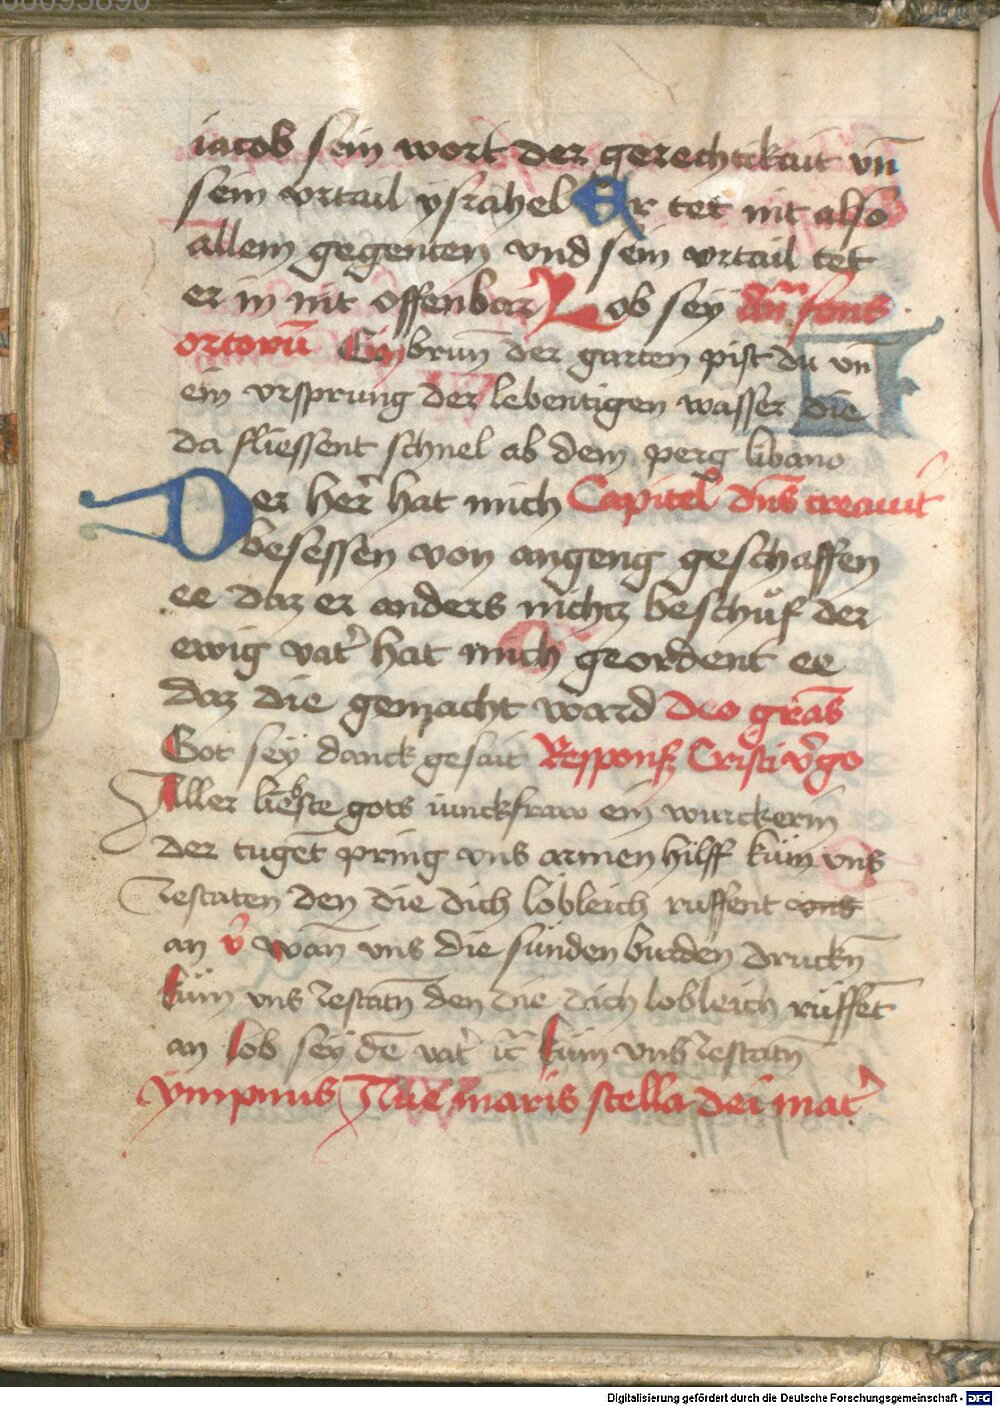 iacob sein wort der gerechtikait vn̄
sein vrtail ysrahel Er tet nit also
allem gegenten vnd sein vrtail tet
er in nit offenbar Lob sey fons
ortorū Ein brun̄ der garten pist du vn̄
ein vrsprung der lebentigen wasser die
da fliessent schnel ab dem perg libano
Der her̄ hat mich Capitel dn̄s creauit
besessen von angeng geschaffen
ee daz er anders nichtz beschůf der
ewig vat̉ hat mich geordent ee
daz die gemacht ward Deo gr̄as
Got sey danck gesait Respons Cristi v̉go
Aller liebste gots iunckfraw ein wurckerin
der tuget̄ pring vns armen hilff kům vns
zestaten den die dich lobleich ruffent vns
an v̉ wan̄ vns die sunden burden druckn̄
kům vns zestatn̄ den die dich lobleich růffet̄
an lob sey dē vat̉ ic̄ kum vns zestatn̄
ympnus Aue maris stella dei mat̉
Digitalisierung gefördert durch die Deutsche Forschungsgemeinschaft - DFG